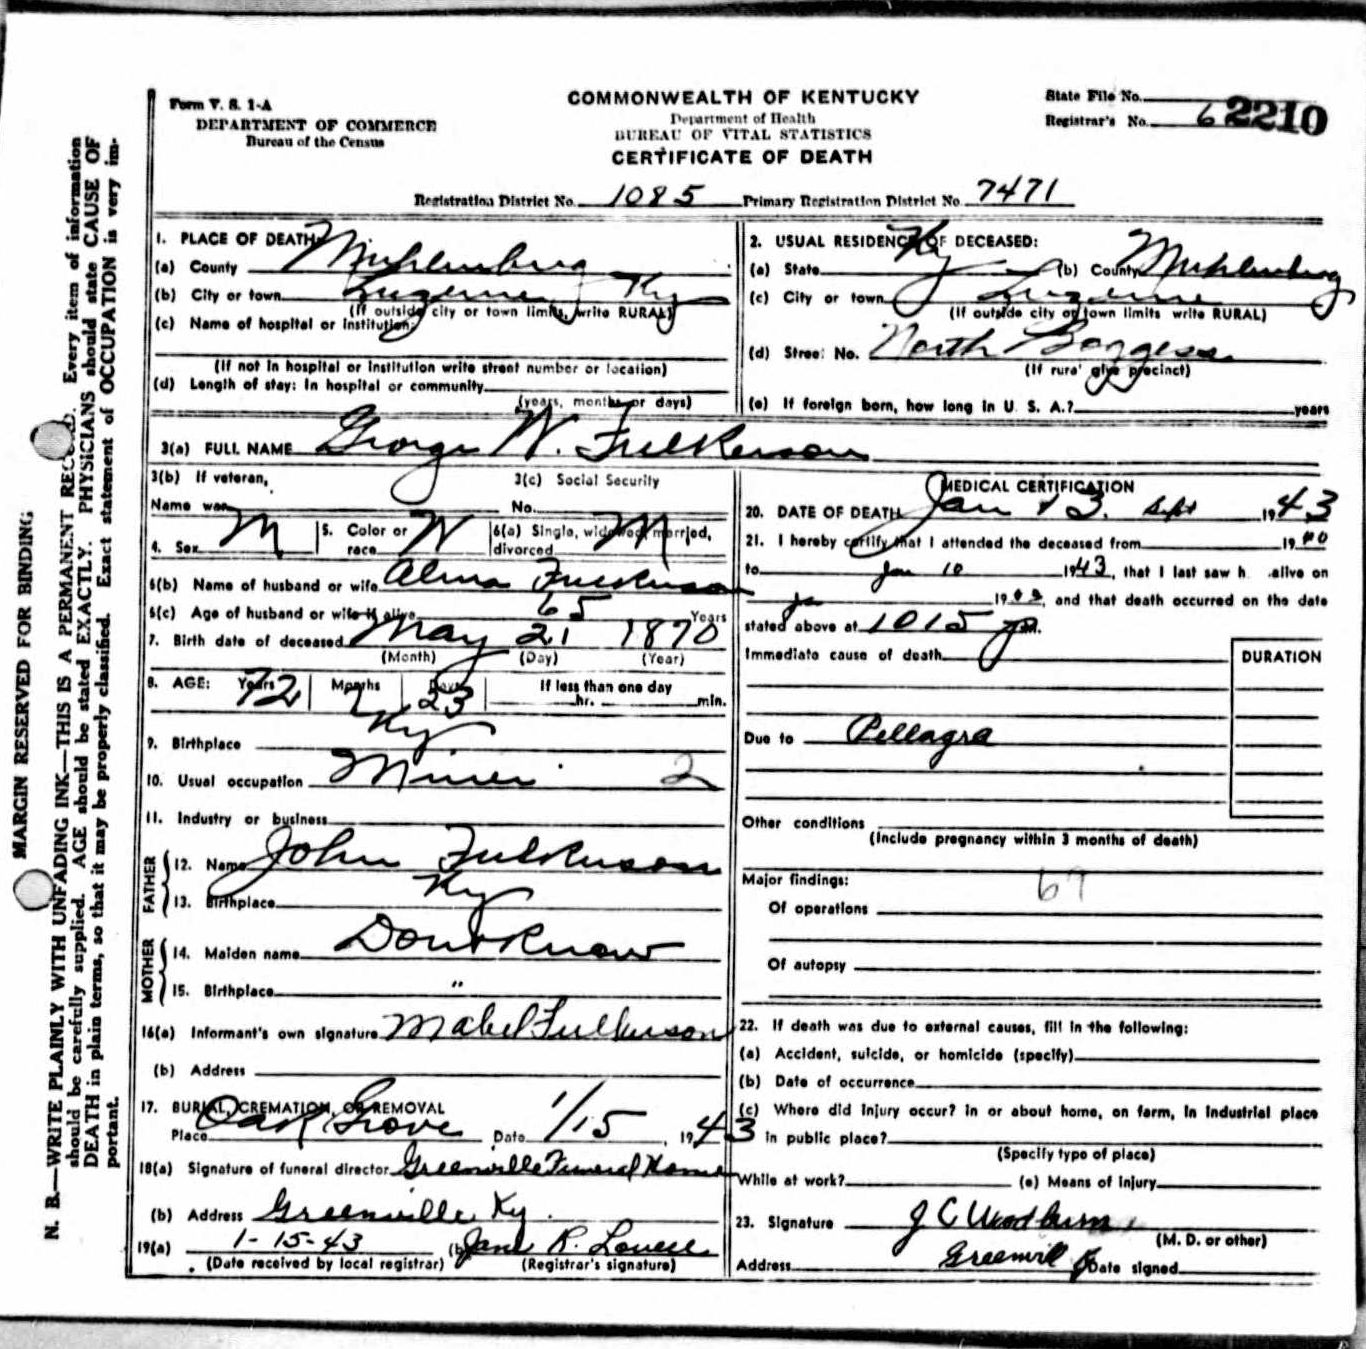 Form V. S. 1-A
DEPARTMENT OF COMMERCE
Bureau of the Census
COMMONWEALTH OF KENTUCKY
Department of Health
BUREAU OF VITAL STATISTICS
CERTIFICATE OF DEATH
State File No.
Registrar's No. 6 2210
Registration District No. 1085 Primary Registration District No. 7471
MARGIN RESERVED FOR BINDING
N. B.—WRITE PLAINLY WITH UNFADING INK—THIS IS A PERMANENT RECORD. Every item of information
should be carefully supplied. AGE should be stated EXACTLY. PHYSICIANS should state CAUSE OF
DEATH in plain terms, so that it may be properly classified. Exact statement of OCCUPATION is very im-
portant.
1. PLACE OF DEATH:
(a) County Muhlenburg
(b) City or town Luzerne, Ky
(If outside city or town limits, write RURAL)
(c) Name of hospital or institution:
(If not in hospital or institution write street number or location)
(d) Length of stay: In hospital or community
(years, months or days)
2. USUAL RESIDENCE OF DECEASED:
(a) State Ky (b) County Muhlenburg
(c) City or town Luzerne
(If outside city or town limits write RURAL)
(d) Street No. North Boggess
(If rural give precinct)
(e) If foreign born, how long in U. S. A.? years
3(a) FULL NAME George W. Fulkerson
3(b) If veteran, 3(c) Social Security
Name war No.
4. Sex M 5. Color or race W 6(a) Single, widowed, married, divorced M
6(b) Name of husband or wife Alma Fulkerson
6(c) Age of husband or wife if alive 65 Years
7. Birth date of deceased May 21 1870
(Month) (Day) (Year)
8. AGE: Years 72 Months 7 Days 23 If less than one day
hr. min.
9. Birthplace Ky
10. Usual occupation Miner 2
11. Industry or business
FATHER
12. Name John Fulkerson
13. Birthplace Ky
MOTHER
14. Maiden name Dont Know
15. Birthplace "
16(a) Informant's own signature Mabel Fulkerson
(b) Address
17. BURIAL, CREMATION, OR REMOVAL
Place Oak Grove Date 1/15, 1943
18(a) Signature of funeral director Greenville Funeral Home
(b) Address Greenville Ky.
19(a) 1-15-43 (b) Jane R. Lovell
(Date received by local registrar) (Registrar's signature)
MEDICAL CERTIFICATION
20. DATE OF DEATH Jan 13. 1943
21. I hereby certify that I attended the deceased from Sept 1940
to Jan 10 1943, that I last saw h alive on
Jan 1943, and that death occurred on the date
stated above at 1015 p m.
Immediate cause of death
DURATION
Due to Pellagra
Other conditions
(Include pregnancy within 3 months of death)
Major findings: 69
Of operations
Of autopsy
22. If death was due to external causes, fill in the following:
(a) Accident, suicide, or homicide (specify)
(b) Date of occurrence
(c) Where did injury occur? in or about home, on farm, in industrial place
in public place?
(Specify type of place)
While at work? (e) Means of Injury
23. Signature J C Woodburn
(M. D. or other)
Address Greenvill Ky Date signed